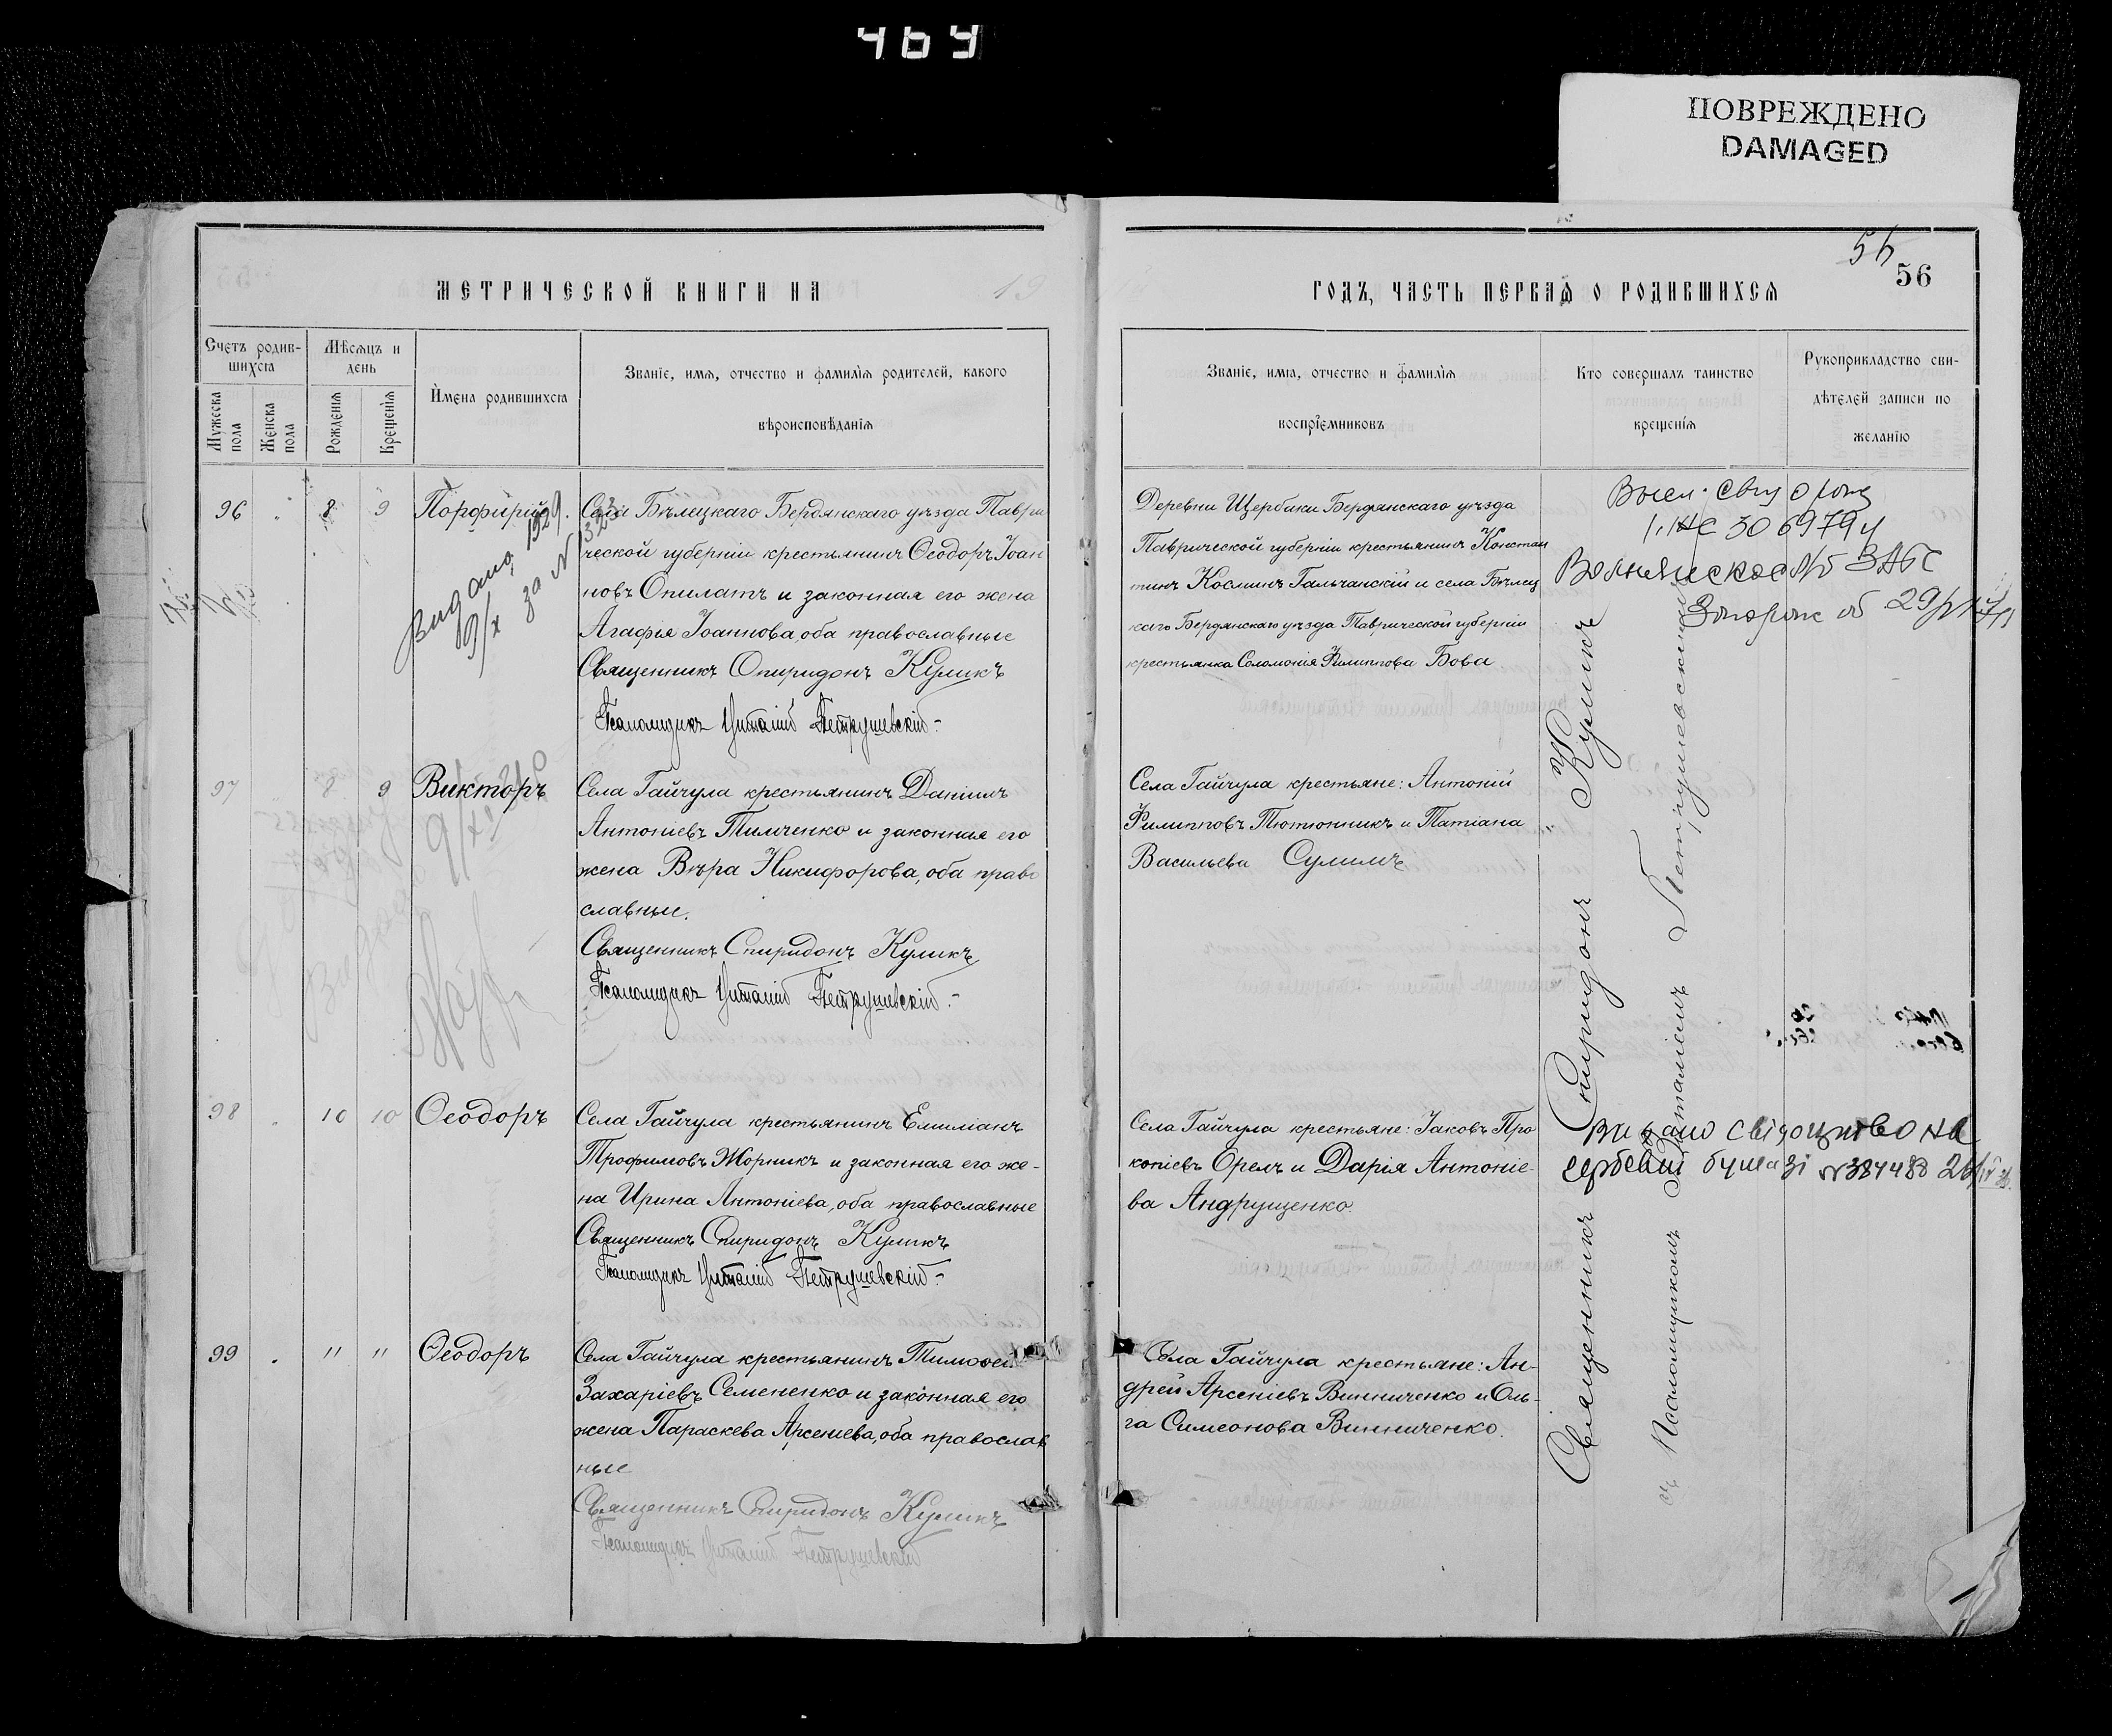 ПОВРЕЖДЕНО
DAMAGED
56
56
МЕТРИЧЕСКОЙ КНИГИ НА 19
ГОДЪ, ЧАСТЬ ПЕРВАЯ О РОДИВШИХСЯ
Счетъ родив-
шихся
Мужеска пола
Женска пола
Мѣсяцъ и
день
Рожденія
Крещенія
Имена родившихся
Званіе, имя, отчество и фамилія родителей, какого
вѣроисповѣданія
Званіе, имя, отчество и фамилія
воспріемниковъ
Кто совершалъ таинство
крещенія
Рукоприкладство сви-
дѣтелей записи по
желанію
96 " 8 9 Порфирій
Видано 1929.
19/X за N 323
Села Бѣлецкаго Бердянскаго уѣзда Таври
ческой губерніи крестьянинъ Ѳеодоръ Іоан
новъ Опилатъ и законная его жена
Агафія Іоаннова, оба православные
Священникъ Спиридонъ Куликъ
Псаломщикъ Виталій Петрушевскій
Деревни Щербаки Бердянскаго уѣзда
Таврической губерніи крестьянинъ Констан
тинъ Косминъ Гальчанскій и села Бѣлец
каго Бердянскаго уѣзда Таврической губерніи
крестьянка Соломонія Филиппова Бова
97 8 9 Викторъ
Села Гайчула крестьянинъ Даніилъ
Антоніевъ Тимченко и законная его
жена Вѣра Никифорова, оба право
славные.
Священникъ Спиридонъ Куликъ
Псаломщикъ Виталій Петрушевскій
Села Гайчула крестьяне: Антоній
Филипповъ Тютюнникъ и Татіана
Васильева Сулимъ
98 " 10 10 Ѳеодоръ
Села Гайчула крестьянинъ Емиліанъ
Трофимовъ Жорникъ и законная его же-
на Ирина Антоніева, оба православные
Священникъ Спиридонъ Куликъ
Псаломщикъ Виталій Петрушевскій
Села Гайчула крестьяне: Іаковъ Про
копіевъ Орелъ и Дарія Антоніе-
ва Андрущенко.
Видано свідоцтво на
гербевій бумазі N 387488
99 " " " Ѳеодоръ
Села Гайчула крестьянинъ Тимоѳей
Захаріевъ Семененко и законная его
жена Параскева Арсеніева, оба православ
ные
Священникъ Спиридонъ Куликъ
Псаломщикъ Виталій Петрушевскій
Села Гайчула крестьяне: Ан-
дрей Арсеніевъ Винниченко и Оль-
га Симеонова Винниченко.
Священникъ Спиридонъ Куликъ
съ Псаломщикомъ Виталіемъ Петрушевскимъ